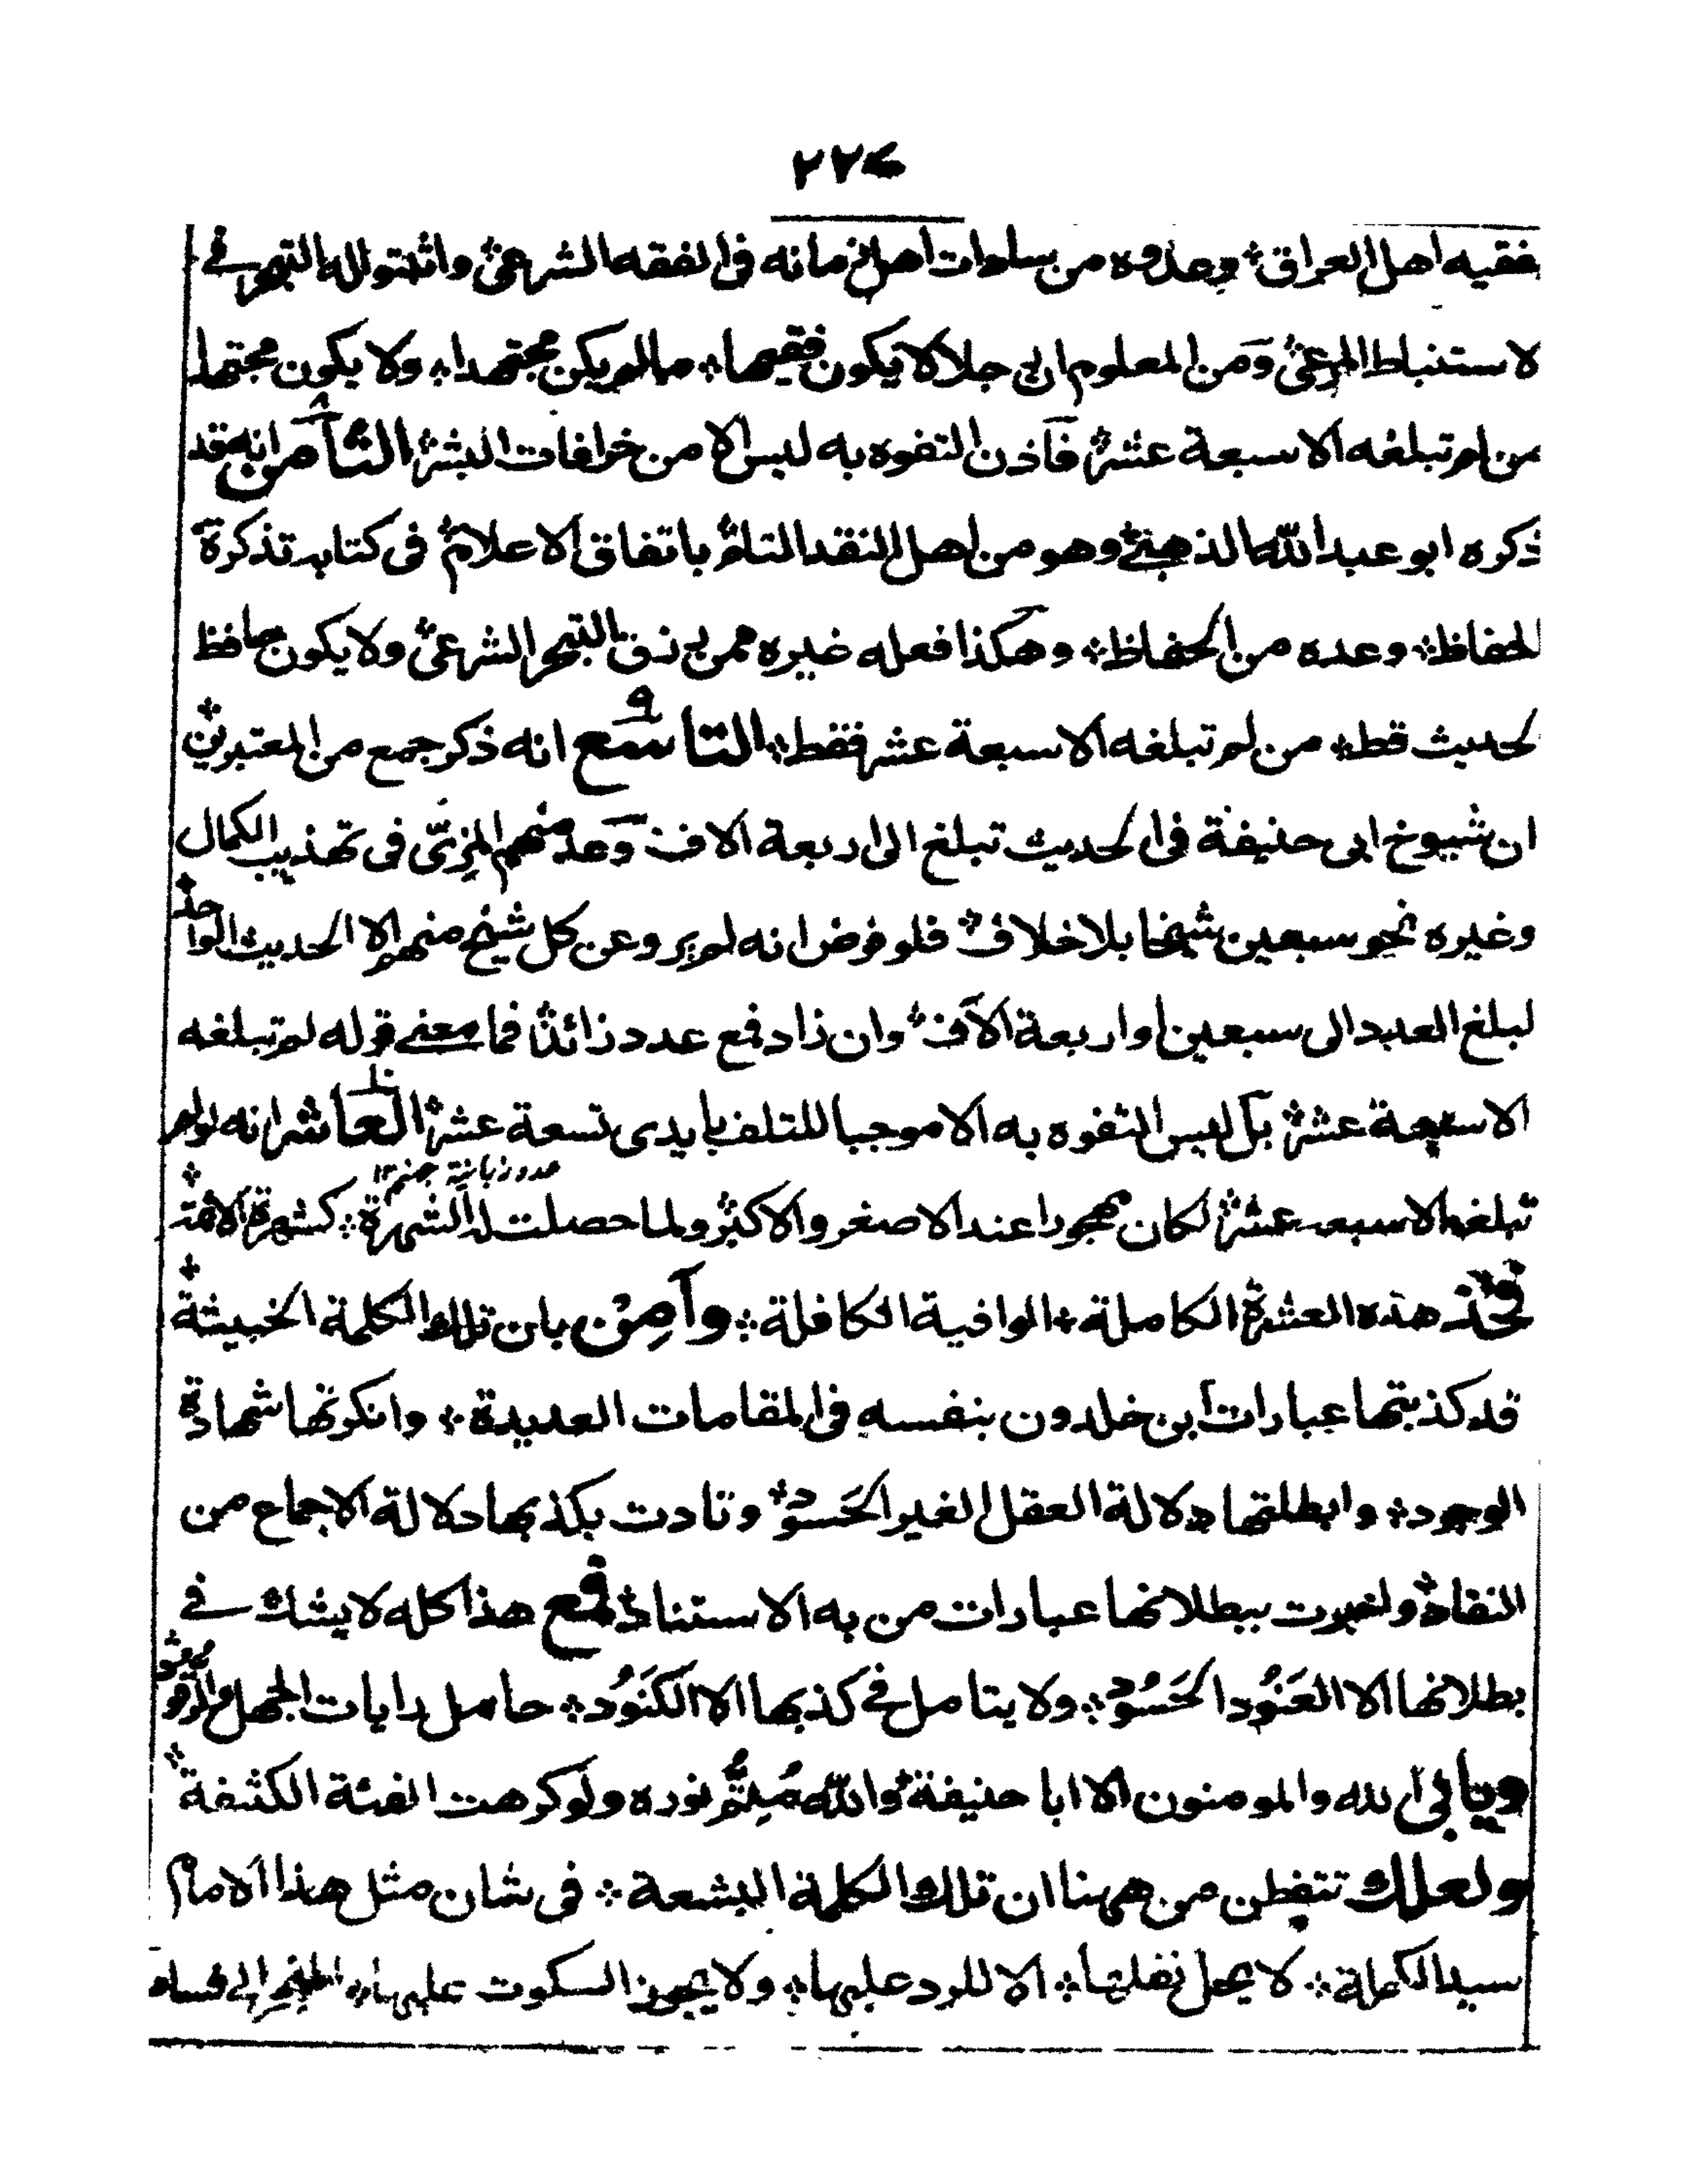 ٢٢٤
فقيه اهل العراق؛ وعدوه من سادات اهل زمانه فى الفقه الشرعىؔ واثبتوا له التبحر فے
لاستنباط المرعىؔ ومن المعلوم ان رجلا لا يكون فقيها؛ ما لم يكن مجتهدا؛ ولا يكون مجتهدا
من لم تبلغه الا سبعة عشر فآذن التفوه به ليس الا من خرافات البشر الثامن ٨ انه قد
ذكره ابو عبد الله الذهبے وهو من اهل النقد التام باتفاق الاعلام فى كتابه تذكرة
لحفاظ؛ وعده من الحفاظ؛ وهكذا فعله غيره ممن رزق التبحر الشرعى ولا يكون حافظ
لحديث قط؛ من لم تبلغه الا سبعة عشر فقط؛ التاسع ٩ انه ذكر جمع من المعتبرين
ان شيوخ ابى حنيفة فى الحديث تبلغ الى اربعة الاف وعد منهم المزىّ فى تهذيب الكمال
وغيره نحو سبعين شيخا بلا خلاف فلو فرض انه لم يرو عن كل شيخ منهم الا الحديث الواحد
لبلغ العدد الى سبعين او اربعة الآف وان زاد فمع عدد زائد فما معنے قوله لم تبلغه
الا سبعة عشر بل ليس التفوه به الا موجبا للتلف بايدى تسعة عشر العاشر انه لو لم
عدد زبانية جهنم ١٢
تبلغه الا سبعة عشر لكان مهجورا عند الاصغر والاكبر ولما حصلت له الشهرة؛ كشهرة الائمة
فخذ هذه العشرة الكاملة؛ الوافية الكافلة؛ وآمِنْ بان تلك الكلمة الخبيثة
قد كذبتها عبارات ابن خلدون بنفسه فى المقامات العديدة؛ وانكرتها شهادة
الوجود؛ وابطلتها دلالة العقل الغير الحَسود ونادت بكذبها دلالة الاجماع من
النقاد واخبرت ببطلانها عبارات من به الاستناد فمع هذا كله لا يشك فے
بطلانها الا العَنُود الحَسُود؛ ولا يتامل فے كذبها الا الكَنُود؛ حامل رايات الجهل
ويابى الله والمومنون الا ابا حنيفة والله مُتِمُّ نوره ولو كرهت الفئة الكثفة
ولعلك تتفطن من ههنا ان تلك الكلمة البشعة؛ فى شان مثل هذا الامام
سيد الكملة؛ لا يحل نقلها؛ الا للرد عليها؛ ولا يجوز السكوت عليها؛ الى فساد